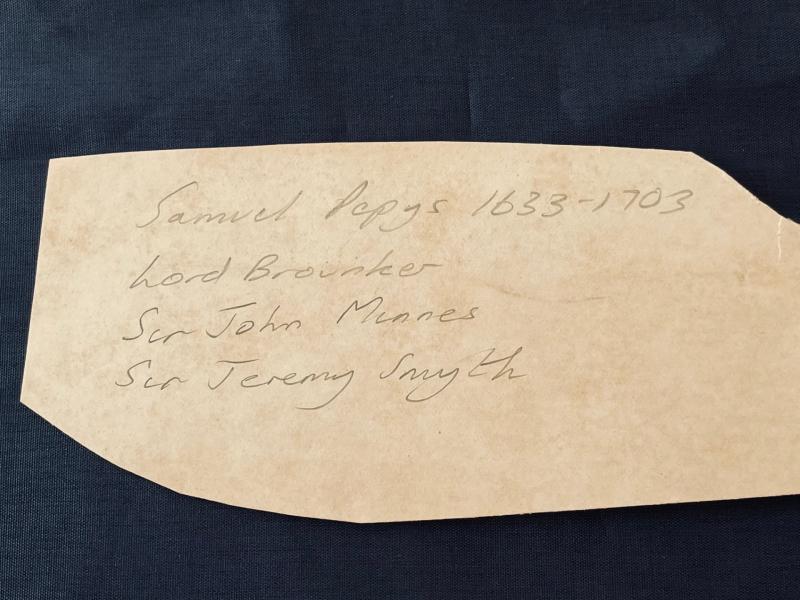 Samuel Pepys 1633-1703
Lord Brounker
Sir John Minnes
Sir Jeremy Smyth